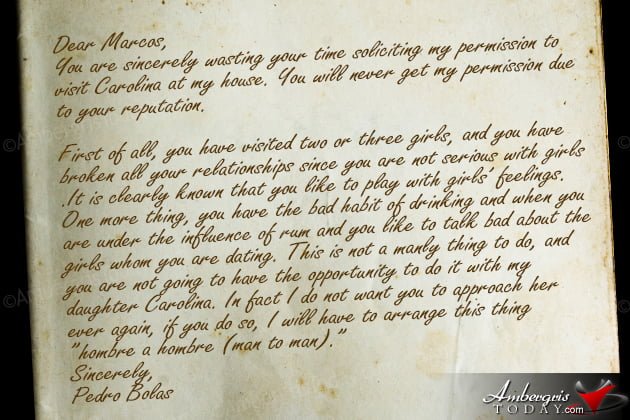 Dear Marcos,
You are sincerely wasting your time soliciting my permission to
visit Carolina at my house. You will never get my permission due
to your reputation.
First of all, you have visited two or three girls, and you have
broken all your relationships since you are not serious with girls
.It is clearly known that you like to play with girls' feelings.
One more thing, you have the bad habit of drinking and when you
are under the influence of rum and you like to talk bad about the
girls whom you are dating. This is not a manly thing to do, and
you are not going to have the opportunity to do it with my
daughter Carolina. In fact I do not want you to approach her
ever again, if you do so, I will have to arrange this thing
"hombre a hombre (man to man)."
Sincerely,
Pedro Bolas
Ambergris
TODAY.com